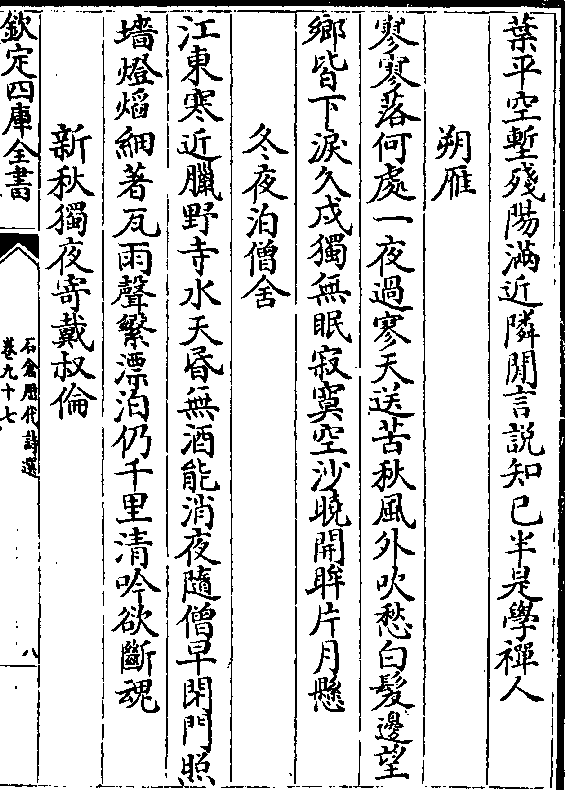 葉平空塹殘陽滿近隣閒言説知已半是學禪人
朔雁
寥寥落何處一夜過寒天送苦秋風外吹愁白髮邊望
鄉皆下淚久戍獨無眠寂寞空沙曉開眸片月懸
冬夜泊僧舍
江東寒近臘野寺水天昏無酒能消夜隨僧早閉門照
墻燈熖細著瓦雨聲繁漂泊仍千里清吟欲斷魂
新秋獨夜寄戴叔倫
欽定四庫全書
石倉歷代詩選
卷九十七
八